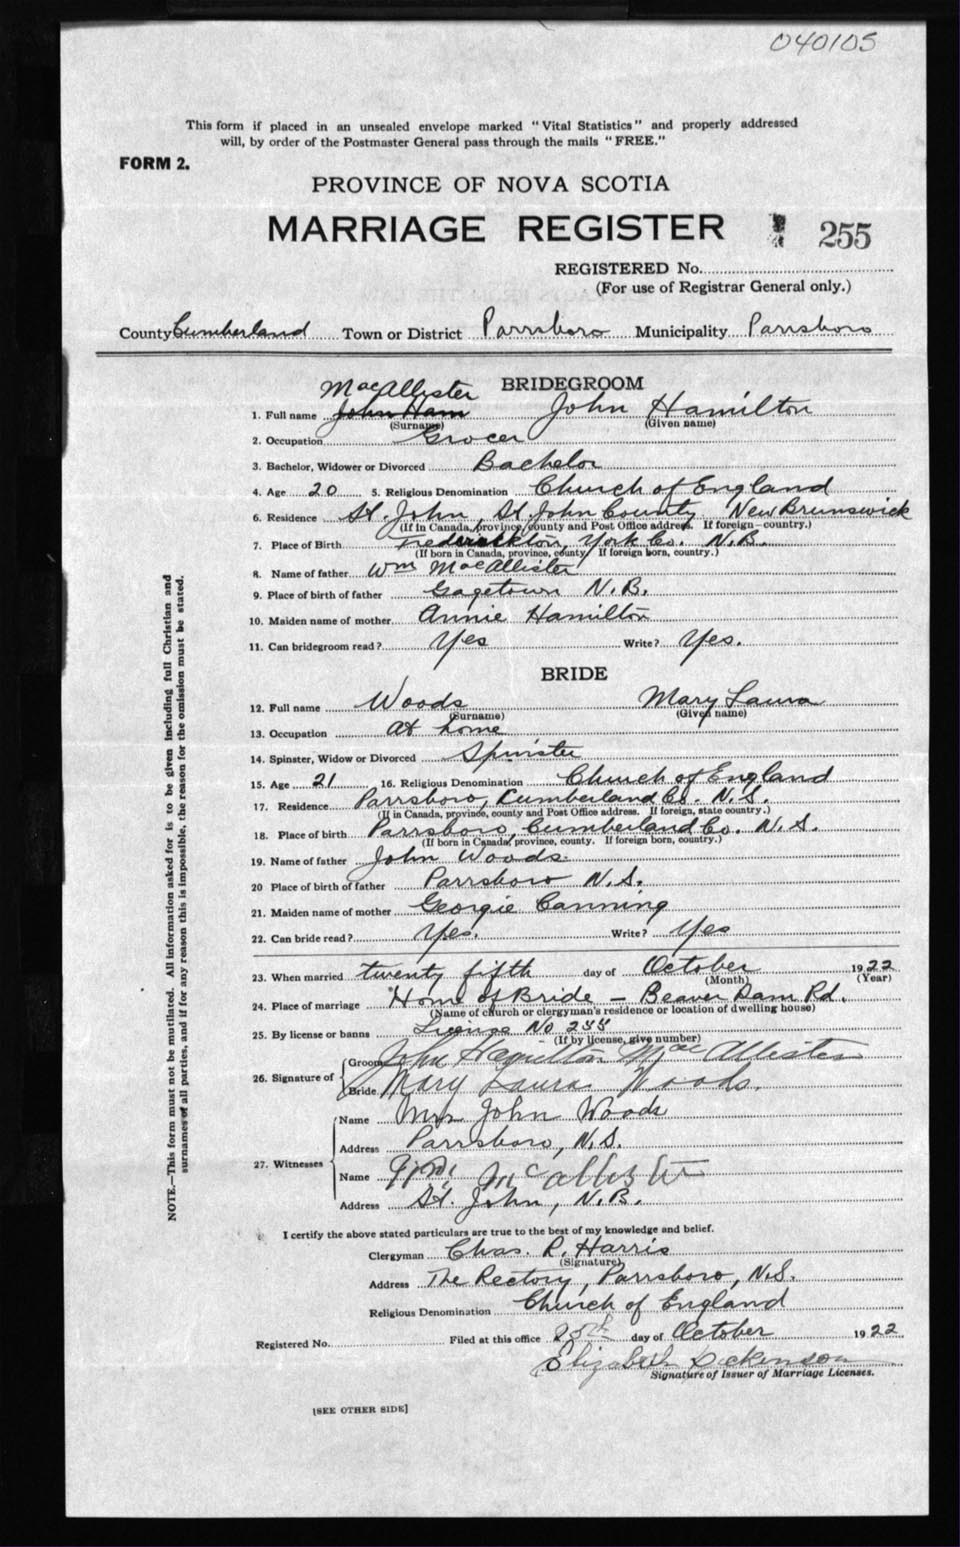 040105
This form if placed in an unsealed envelope marked "Vital Statistics" and properly addressed
will, by order of the Postmaster General pass through the mails "FREE."
FORM 2.
PROVINCE OF NOVA SCOTIA
MARRIAGE REGISTER 255
REGISTERED No.
(For use of Registrar General only.)
County Cumberland Town or District Parrsboro Municipality Parrsboro
BRIDEGROOM
MacAllister
1. Full name John Ham John Hamilton
(Surname) (Given name)
2. Occupation Grocer
3. Bachelor, Widower or Divorced Bachelor
4. Age 20 5. Religious Denomination Church of England
6. Residence St. John, St. John County New Brunswick
(If In Canada, province, county and Post Office address. If foreign—country.)
7. Place of Birth Fredericton, York Co. N.B.
(If born in Canada, province, county. If foreign born, country.)
8. Name of father Wm MacAllister
9. Place of birth of father Gagetown N.B.
10. Maiden name of mother Annie Hamilton
11. Can bridegroom read? Yes Write? Yes.
BRIDE
12. Full name Woods Mary Laura
(Surname) (Given name)
13. Occupation at home
14. Spinster, Widow or Divorced Spinster
15. Age 21 16. Religious Denomination Church of England
17. Residence Parrsboro, Cumberland Co. N.S.
(If in Canada, province, county and Post Office address. If foreign, state country.)
18. Place of birth Parrsboro, Cumberland Co. N.S.
(If born in Canada, province, county. If foreign born, country.)
19. Name of father John Woods
20 Place of birth of father Parrsboro N.S.
21. Maiden name of mother Georgie Canning
22. Can bride read? Yes. Write? Yes
23. When married twenty fifth day of October 1922
(Month) (Year)
24. Place of marriage Home of Bride – Beaver Dam Rd.
(Name of church or clergyman's residence or location of dwelling house)
25. By license or banns License No 255
(If by license, give number)
26. Signature of Groom John Hamilton MacAllister
Bride Mary Laura Woods.
27. Witnesses Name Mrs John Woods
Address Parrsboro, N.S.
Name McAllister
Address St. John, N.B.
I certify the above stated particulars are true to the best of my knowledge and belief.
Clergyman Chas. R. Harris
(Signature)
Address The Rectory, Parrsboro, N.S.
Religious Denomination Church of England
Registered No. Filed at this office 25th day of October 1922
Elizabeth Dickinson
Signature of Issuer of Marriage Licenses.
[SEE OTHER SIDE]
NOTE.—This form must not be mutilated. All information asked for is to be given including full Christian and
surnames of all parties, and if for any reason this is impossible, the reason for the omission must be stated.